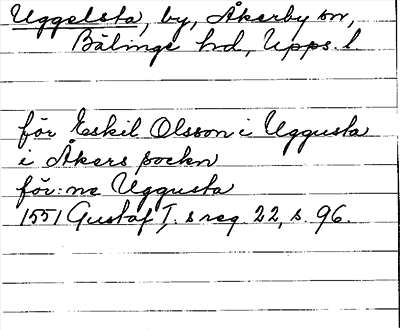 Uggelsta, by, Åkerby sn,
Bälinge hd, Upps. l.
för Eskil Olsson i Uggusta
i Åkers sockn
för:ne Uggusta
1551 Gustaf I. s reg. 22, s. 96.